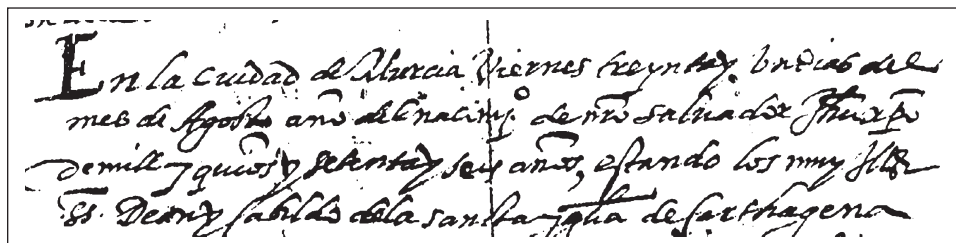 En la Ciudad de Murcia Viernes treynta y un dias del
mes de Agosto año del nacimi.º de nr̃o salvador Jhu xp̃o
de mill y qui.os y setenta y seis años, estando los muy Ill.es
SS. Dean y Cabildo de la sancta ygl̃ia de Carthagena